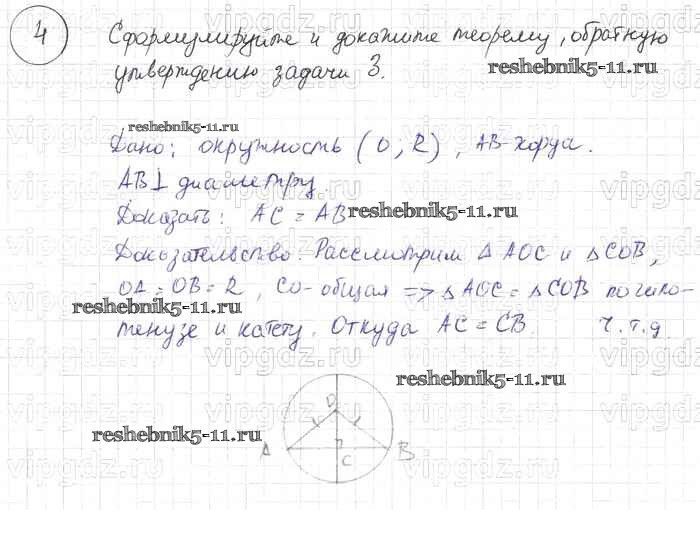 4
Сформулируйте и докажите теорему, обратную
утверждению задачи 3.
reshebnik5-11.ru
reshebnik5-11.ru
Дано: окружность (O; R), AB-хорда.
AB⊥ диаметру.
Доказать: AC = AB
reshebnik5-11.ru
Доказательство: Рассмотрим △ AOC и △COB,
OA = OB = R, CO-общая => △ AOC = △COB по гипо-
reshebnik5-11.ru
тенузе и катету. Откуда AC = CB. ч.т.д.
reshebnik5-11.ru
reshebnik5-11.ru
O
A
C
B
vipgdz.com